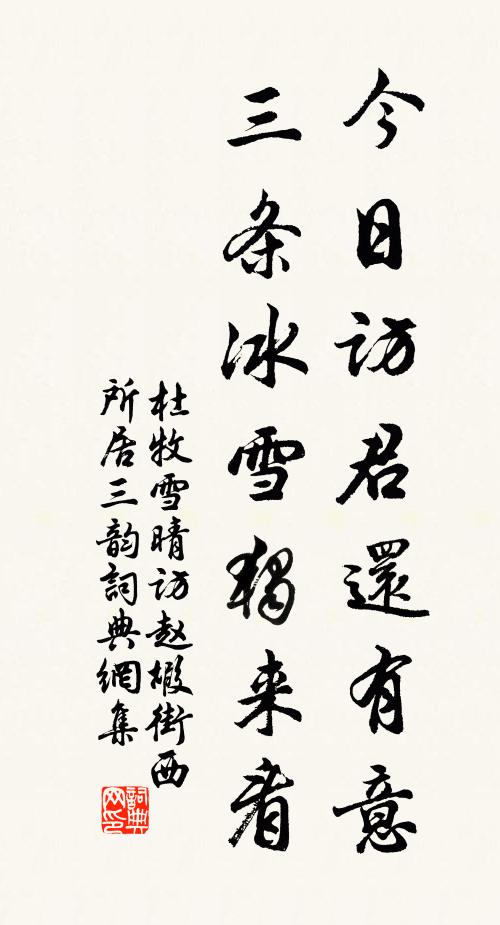 今日访君還有意
三条冰雪獨来看
杜牧雪晴访赵嘏街西
所居三韵詞典網集
詞典网印